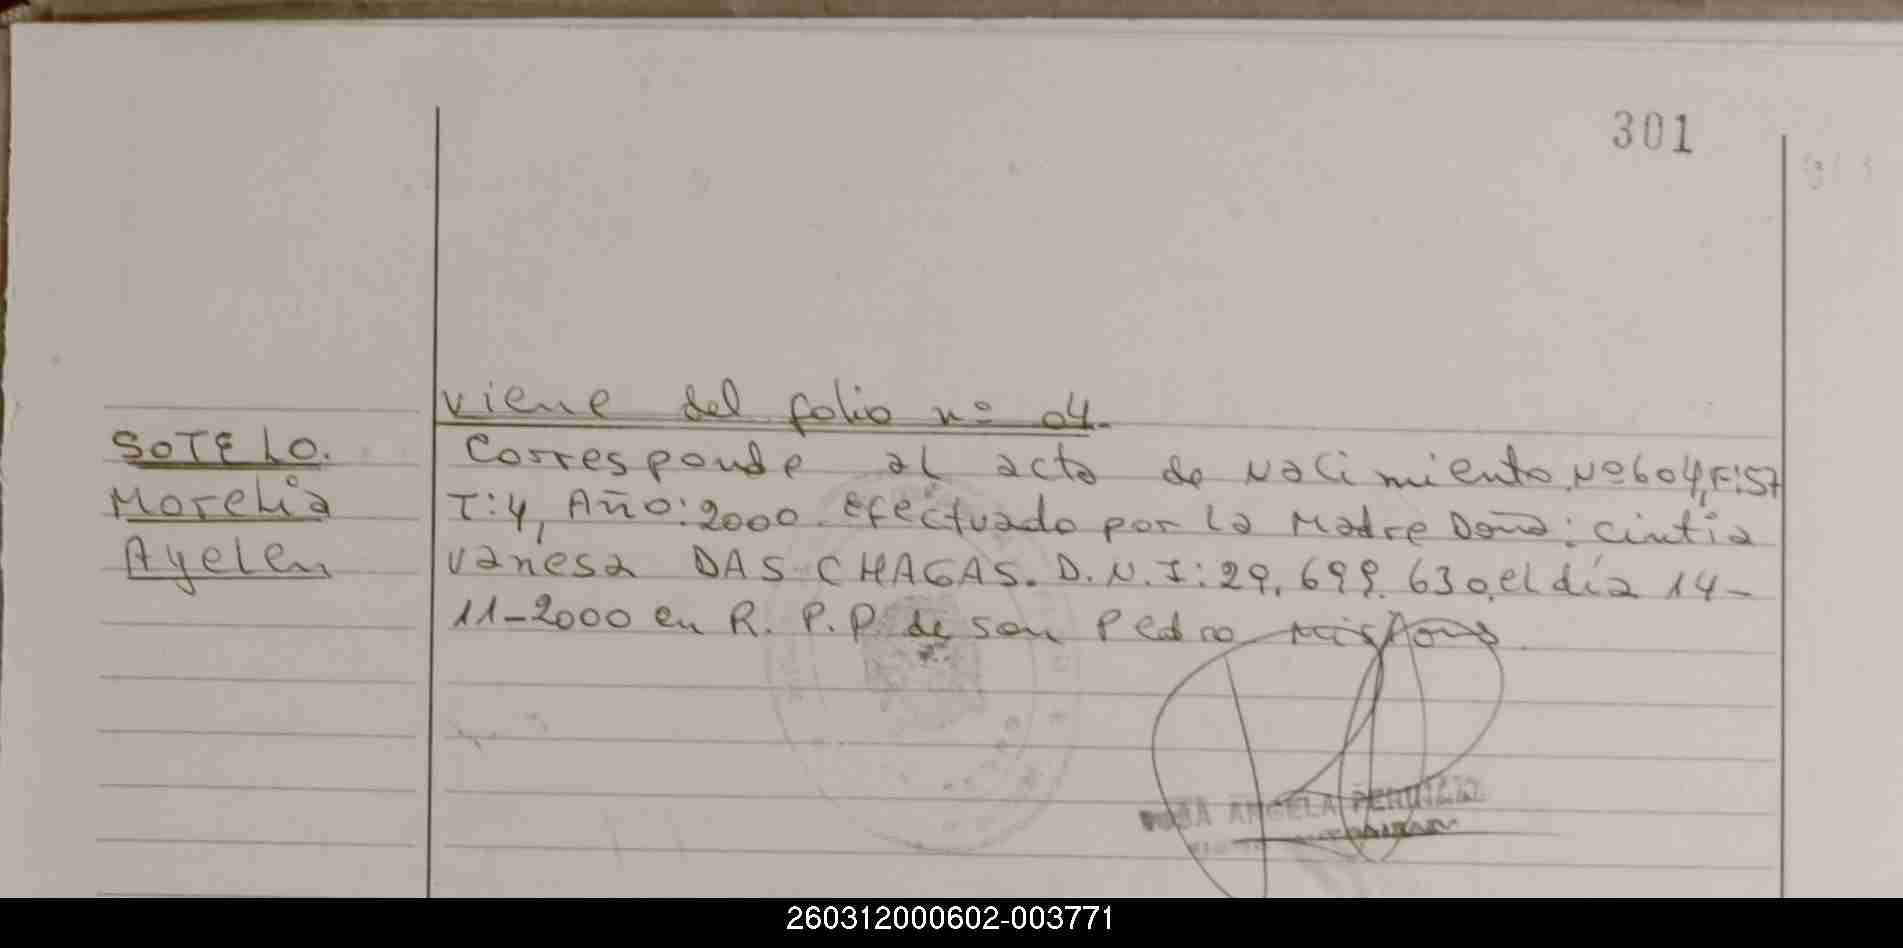 301
viene del folio nº 04.
SOTELO.
Morelia
Ayelen
Corresponde al acta de Nacimiento. Nº 604, F:57
T:4, Año:2000. Efectuado por la Madre Doña: Cintia
Vanesa DAS CHAGAS. D.N.I: 29.699.630, el día 14-
11-2000 en R.P.P. de San Pedro Misiones
ANGELA
260312000602-003771